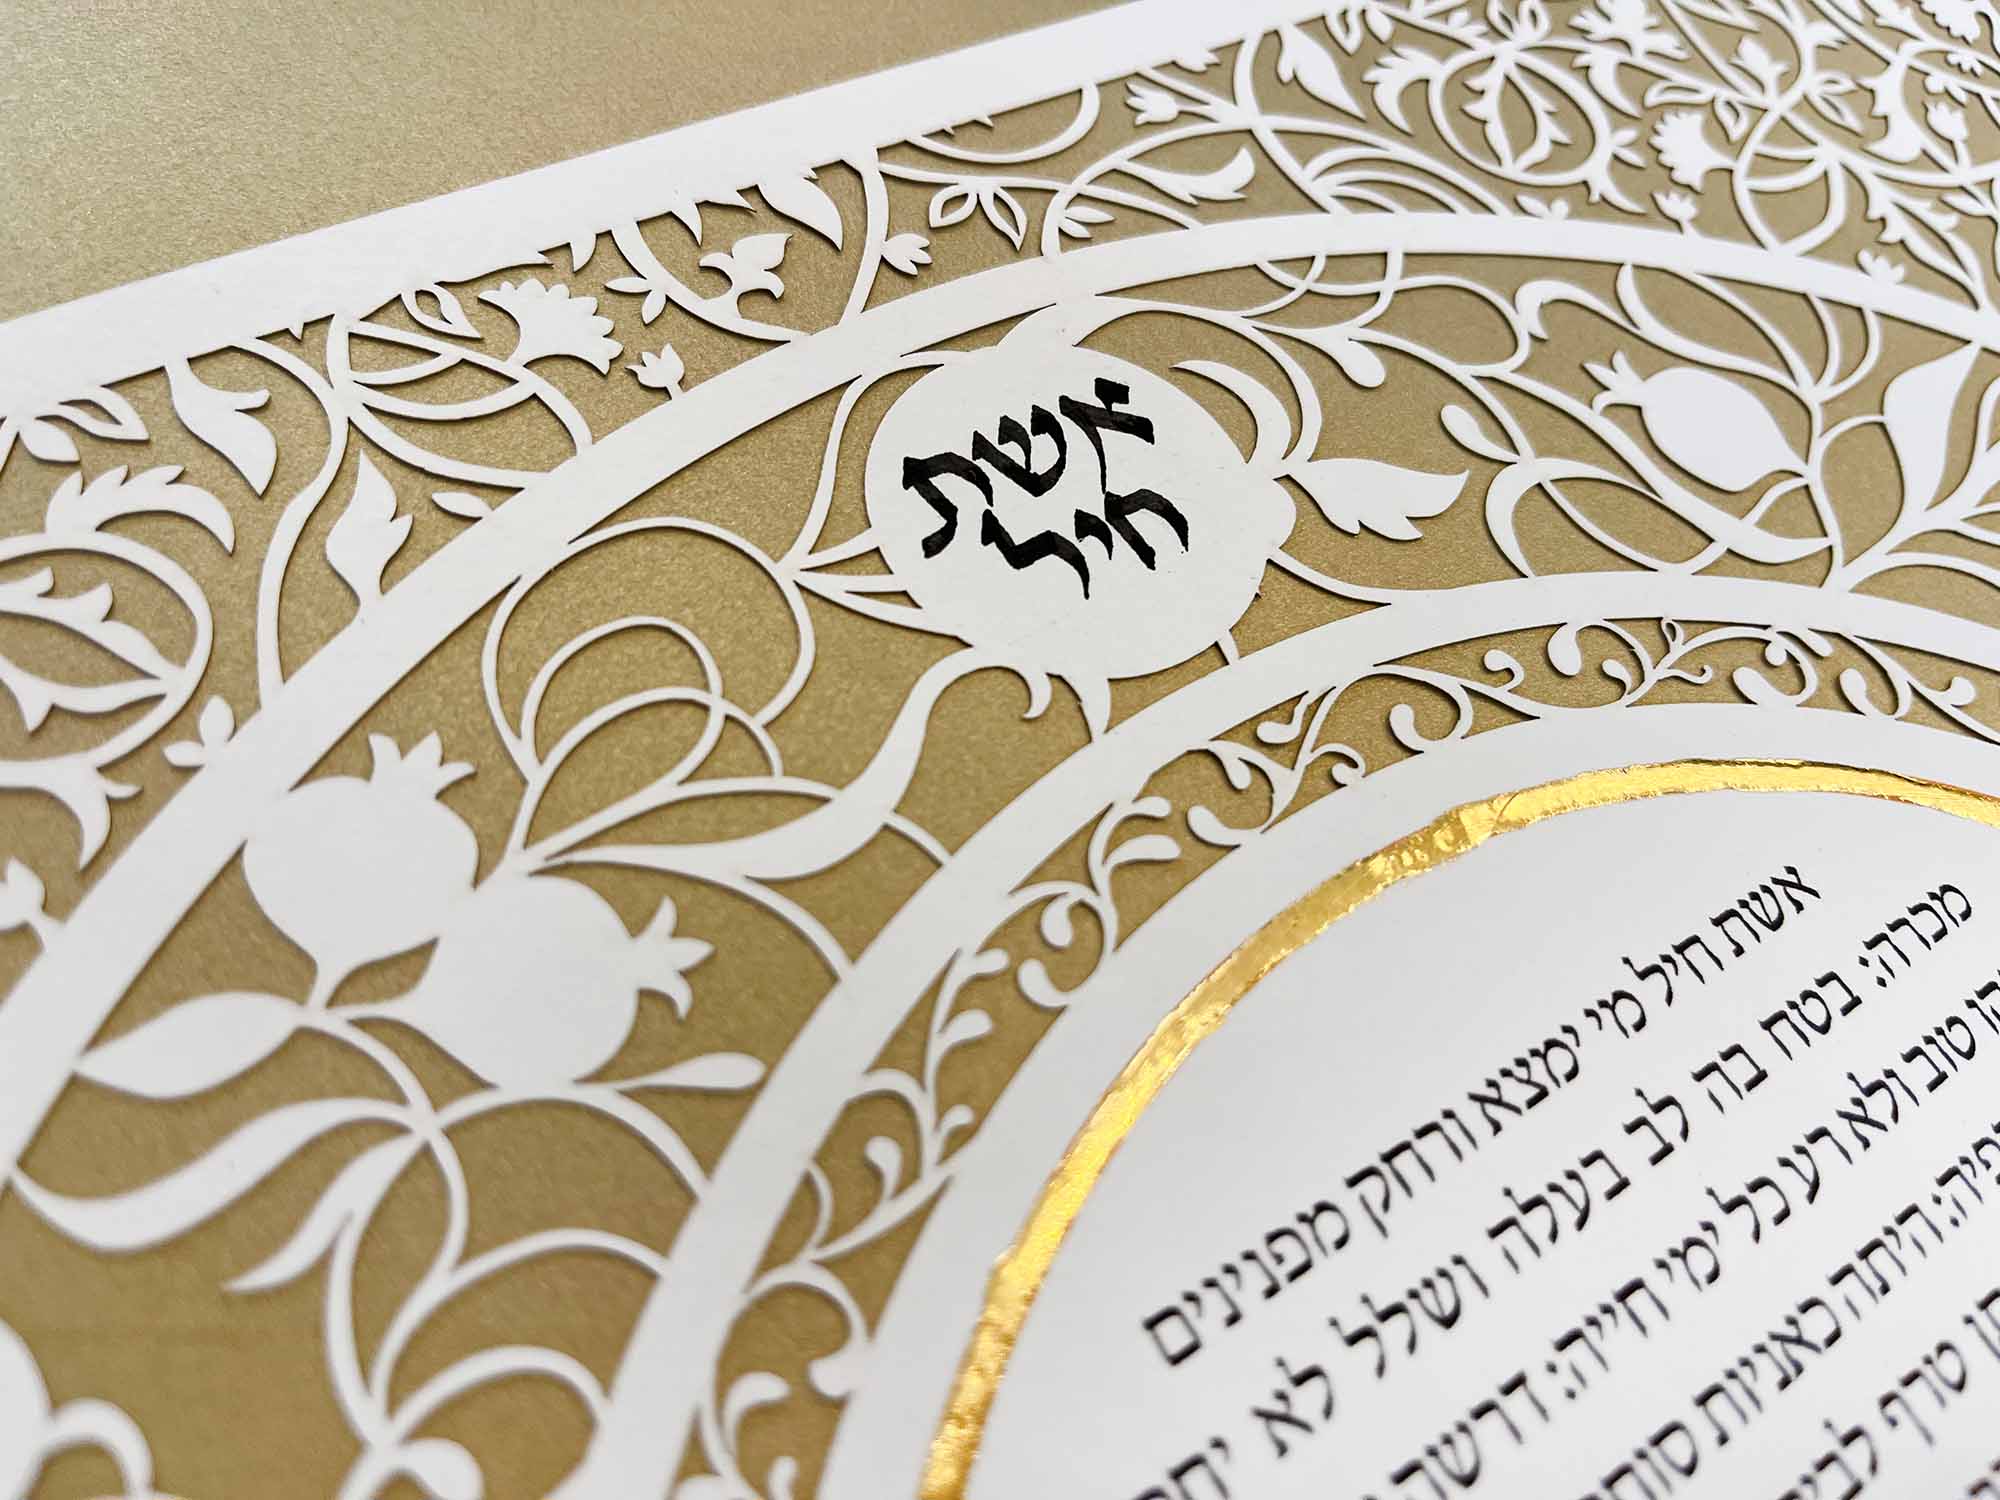 אשת
חיל
אשת חיל מי ימצא ורחק מפנינים
מכרה: בטח בה לב בעלה ושלל לא
טוב ולא רע כל ימי חייה: דרשה
היתה כאניות סוחר
טרף